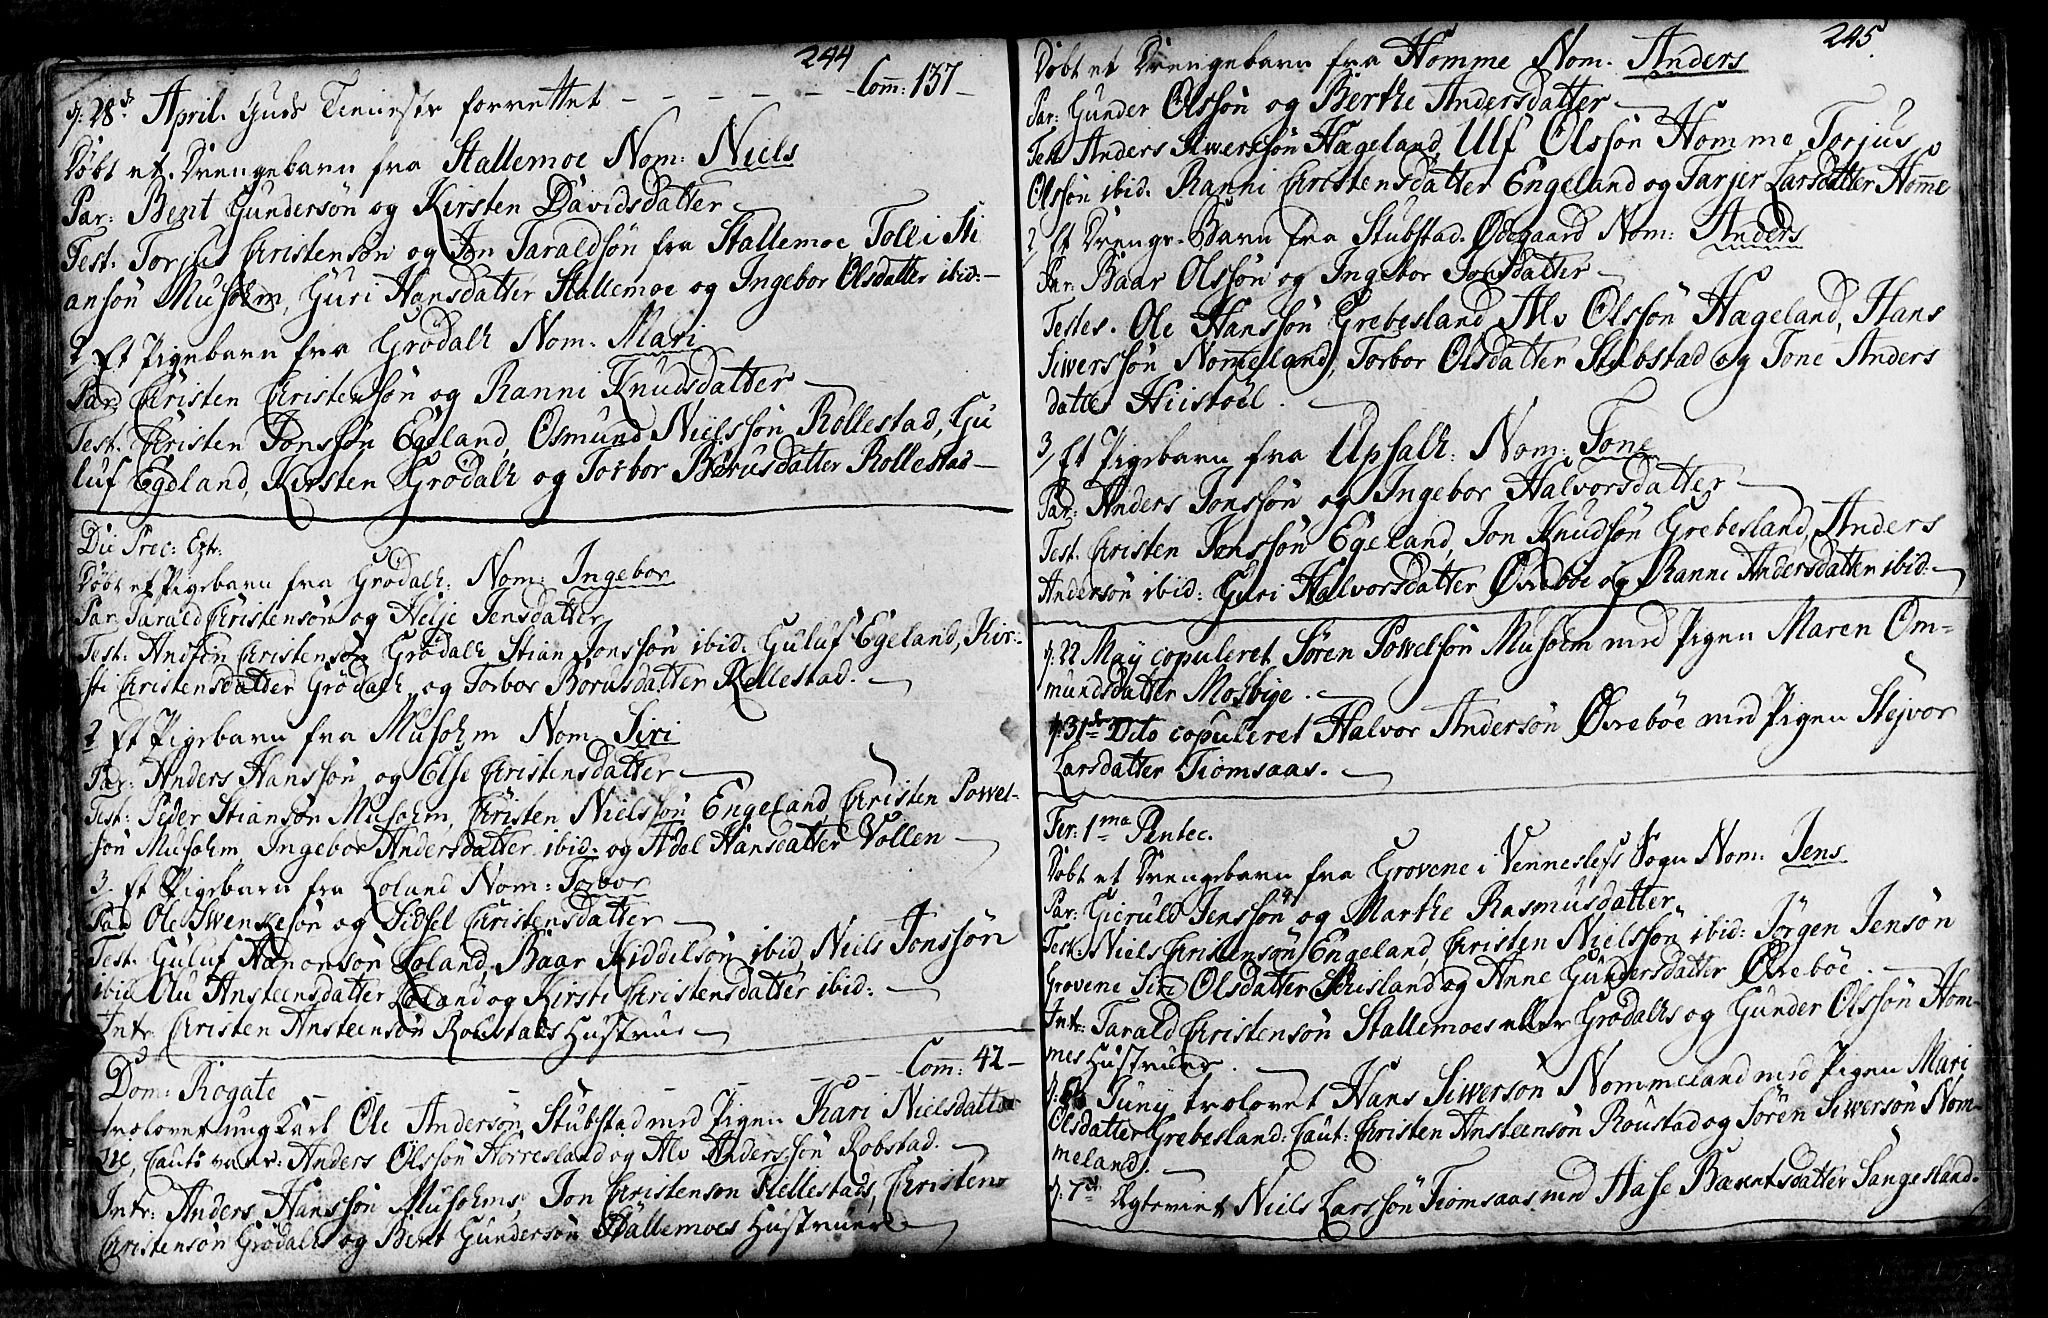 244
d: 28d April. Guds Tieniste forrettet – – – – – – Com̄: 137 –
Döbt et Drengebarn fra Stallemoe Nom: Niels
Par: Bent Gundersön og Kirsten Davidsdatter
Test. Torjus Christensön og Jon Taraldsön fra Stallemoe Tolli Sti
ansön Musohm, Guri Hansdatter Stallemoe og Ingebor Olsdatter ibid: –
2 Et Pigebarn fra Grödalh Nom: Mari
Par: Christen Christensön og Ranni Knudsdatter
Test. Christen Jonssön Egeland, Osmund Nielssön Rollestad, Gu
luf Egeland, Kirsten Grödalh og Torbor Börusdatter Rollestad –
Die Prec: Extr:
Döbt et Pigebarn fra Grödalh: Nom: Ingebor
Par. Tarald Christensön og Helje Jensdatter
Test: Christensön Grödalh Stian Jonssön ibid. Guluf Egeland, Kir-
sti Christensdatter Grödalh og Torbor Borusdatter Rellestad.
2 Et Pigebarn fra Musohm Nom. Siri
Par: Anders Hanssön og Else Christensdatter
Test: Peder Stiansön Musohm, Christen Nielssön Engeland, Christen Powel-
sön Musohm, Ingebor Andersdatter ibid. og Adel Hansdatter Vollen
3. Et Pigebarn fra Loland Nom: Torbor
Par Ole Swenkesön og Sidsel Christensdatter
Test. Guluf Aanonsön Loland, Baar Kiddelsön ibid, Niels Jonssön
ibid Ansteensdatter Loland og Kirsti Christensdatter ibid:
Intr: Christen Ansteensön Robstads Hustrue
Dom: Rogate – – – – – – Com̄: 42 –
trolovet ung Karl Ole Andersön Stubstad med Pigen Kari Nielsdatter
Cauti varer: Anders Olssön Horresland og Alv Anderssön Robstad.
Intr: Anders Hanssön Musohms, Jon Christensön Rellestads, Christen
Christensön Grödalhs og Bent Gundersön Stallemoes Hustruer
245
Döbt et Drengebarn fra Homme Nom. Anders
Par: Gunder Olssön og Berthe Andersdatter
Test Anders Siwerssön Hageland, Ulf Olssön Homme, Torjus
Olssön ibid. Ranni Christensdatter Engeland og Tarjer Larsdatter Hom̄e
2, Et Drenge-Barn fra Stubstad. Ödegaard Nom: Anders
Par: Baar Olssön og Ingebor Jonsdatter
Testes. Ole Hanssön Grebesland, Alv Olssön Hageland, Hans
Siwerssön Nom̄eland, Torbor Olsdatter Stubstad og Tone Anders
datter Hiistöel.
3, Et Pigebarn fra Upsalh: Nom: Tone
Par: Anders Jonssön og Ingebor Halvorsdatter
Test. Christen Jonssön Egeland, Jon Knudsön Grebesland, Anders
Andersön ibid: Guri Halvorsdatter Övreböe og Ranni Andersdatter ibid.
d: 22 Maij copuleret Sören Powelsön Musohm med Pigen Maren Om=
mundsdatter Mosbige.
d: 31d Dito copuleret Halvor Andersön Övreböe med Pigen Stejvor
Larsdatter Tiomsaas.
Fer: 1ma Pentec.
Döbt et Drengebarn fra Grovene i Venneslefs Sogn Nom: Jens
Par: Gieruld Jenssön og Marthe Rasmusdatter
Test: Niels Christensön Engeland, Christen Nielssön ibid: Jörgen Jensön
Grovene Siri Olsdatter Risland og Anne Gundersdatter Övreböe.
Intr: Tarald Christensön Stallemoes eller Grödalhs og Gunder Olssön Hom-
mes Hustruer.
Junij trolovet Hans Siwersön Nommeland med Pigen Mari
Olsdatter Grebesland: Caut: Christen Ansteensön Roustad og Sören Siwersön Nom-
meland.
d: 7d Ægteviet Niels Larssön Tiomsaas med Aase Barentsdatter Sangesland.